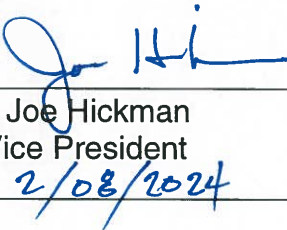 Joe Hickman
Joe Hickman
Vice President
2/08/2024